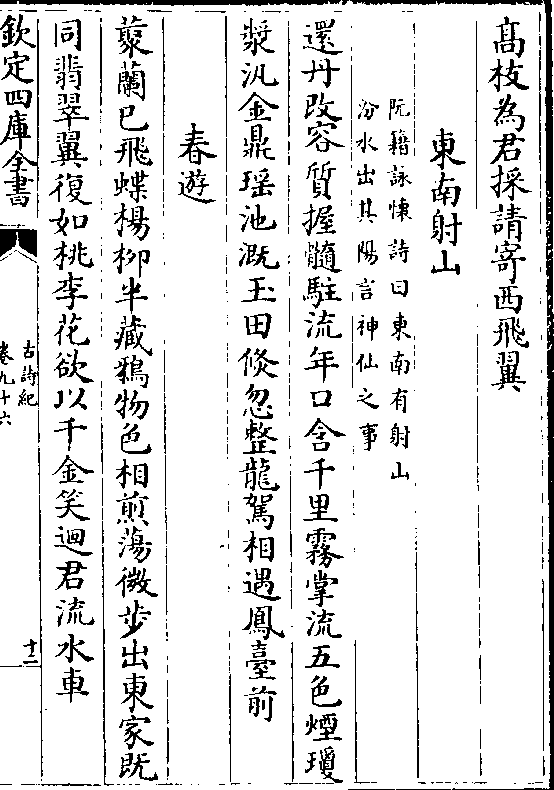 髙枝為君採請寄西飛翼
東南射山
阮籍詠懐詩曰東南有射山
汾水出其陽言神仙之事
還丹改容質握髓駐流年口含千里霧掌流五色煙瓊
漿汎金鼎瑶池溉玉田倐忽整龍駕相遇鳳臺前
春遊
蘂蘭已飛蝶楊柳半藏鴉物色相煎蕩微步出東家既
同翡翠翼復如桃李花欲以千金笑迴君流水車
欽定四庫全書
古詩紀
卷九十六
十二